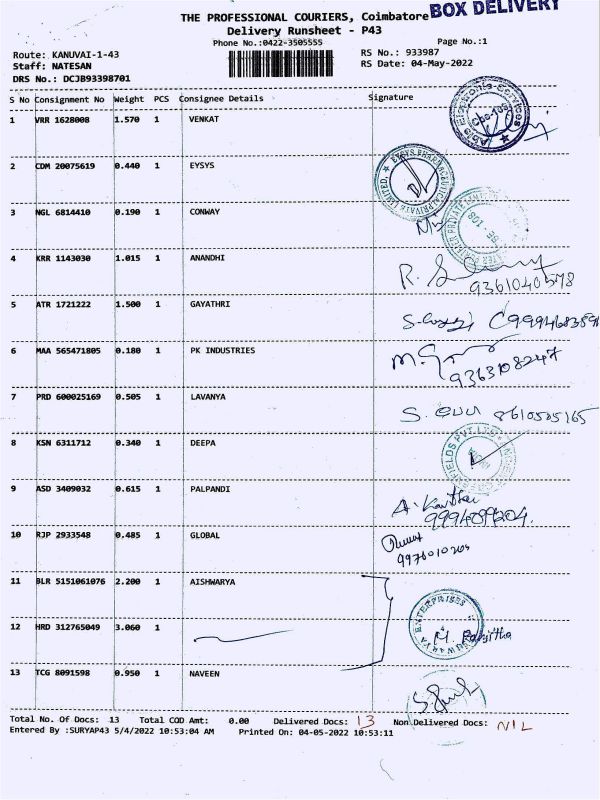 BOX DELIVERY
THE PROFESSIONAL COURIERS, Coimbatore
Delivery Runsheet - P43
Phone No.:0422-3505555 Page No.:1
Route: KANUVAI-1-43 RS No.: 933987
Staff: NATESAN RS Date: 04-May-2022
DRS No.: DCJB93398701
S No Consignment No Weight PCS Consignee Details Signature
1 VRR 1628008 1.570 1 VENKAT
2 CDM 20075619 0.440 1 EYSYS
EYSYS PHARMACEUTICAL PRIVATE LIMITED
3 NGL 6814410 0.190 1 CONWAY
4 KRR 1143030 1.015 1 ANANDHI
9361040578
5 ATR 1721222 1.500 1 GAYATHRI
6 MAA 565471805 0.180 1 PK INDUSTRIES
9363108247
7 PRD 600025169 0.505 1 LAVANYA
8610505165
8 KSN 6311712 0.340 1 DEEPA
9 ASD 3409032 0.615 1 PALPANDI
10 RJP 2933548 0.485 1 GLOBAL
11 BLR 5151061076 2.200 1 AISHWARYA
ENTERPRISES
12 HRD 312765049 3.060 1
M. Ranjitha
13 TCG 8091598 0.950 1 NAVEEN
Total No. Of Docs: 13 Total COD Amt: 0.00 Delivered Docs: 13 Non.Delivered Docs: NIL
Entered By :SURYAP43 5/4/2022 10:53:04 AM Printed On: 04-05-2022 10:53:11